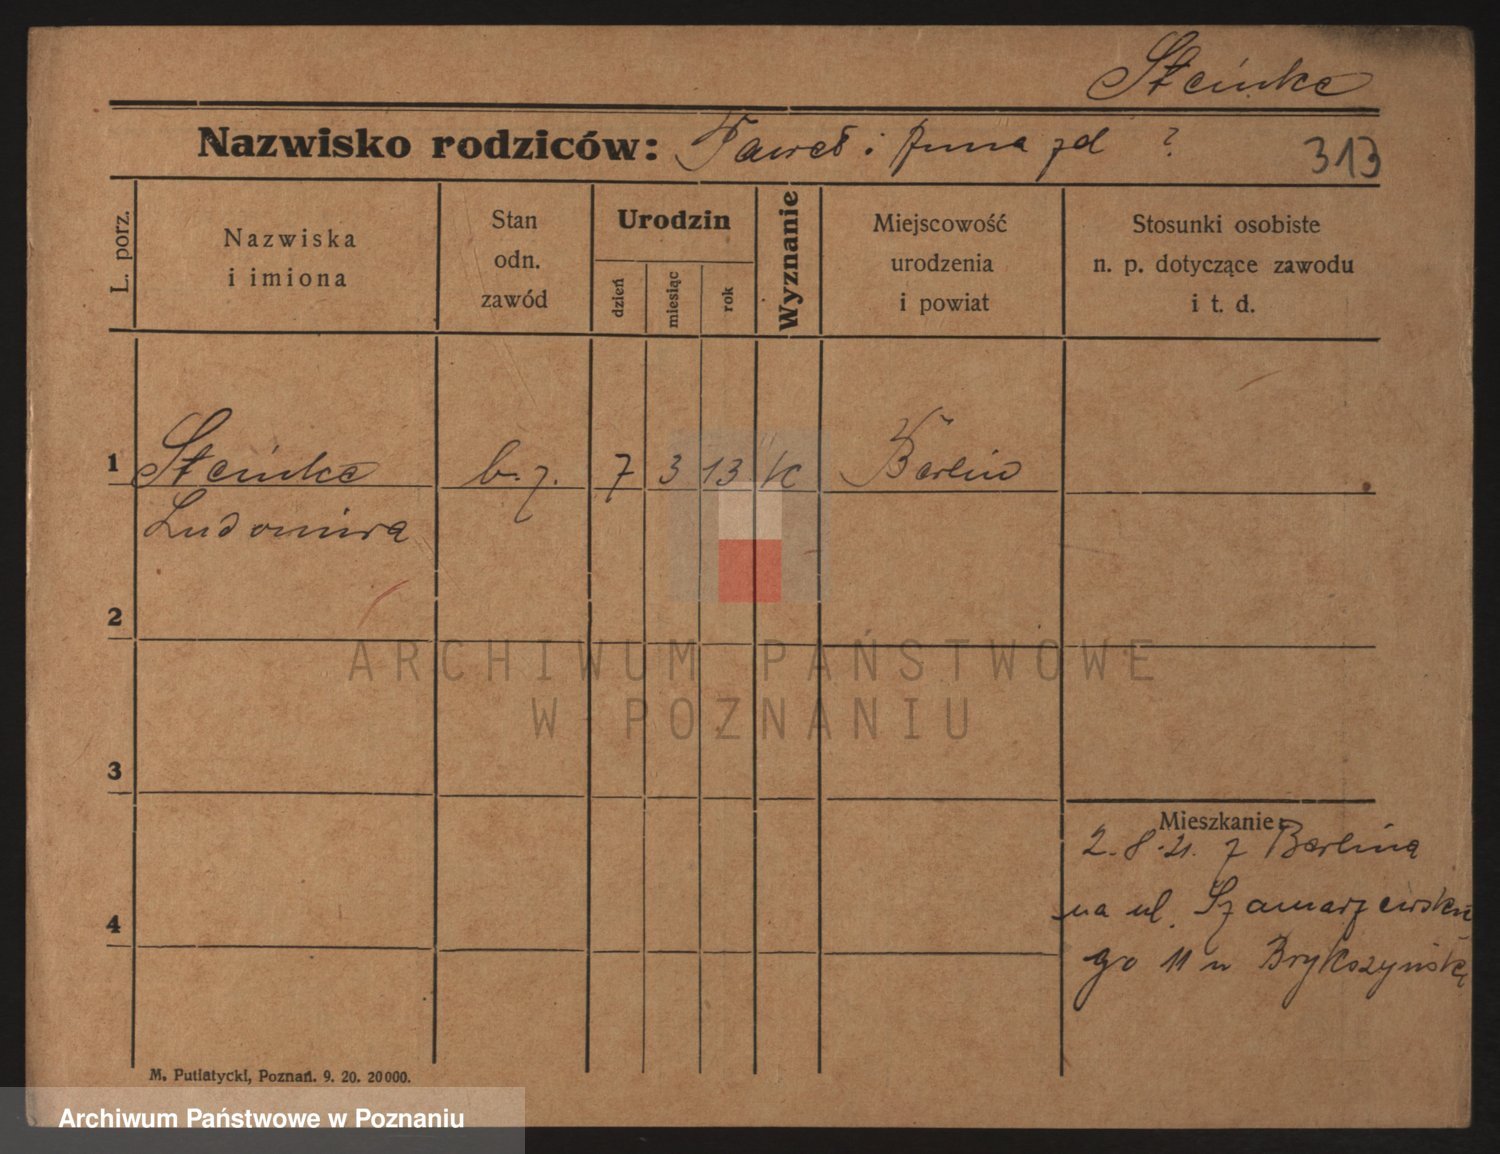 Steinke
Nazwisko rodziców: Paweł i Anna zd ?
313
L. porz.
Nazwiska
i imiona
Stan
odn.
zawód
Urodzin
dzień
miesiąc
rok
Wyznanie
Miejscowość
urodzenia
i powiat
Stosunki osobiste
n. p. dotyczące zawodu
i t. d.
1 Steinke b. z. 7 3 13 k Berlin
Ludomira
2
3
4
ARCHIWUM PAŃSTWOWE
W POZNANIU
Mieszkanie:
2.8.21. z Berlina
na ul. Szamarzewskie
go 11 u
M. Putiatycki, Poznań. 9. 20. 20000.
Archiwum Państwowe w Poznaniu